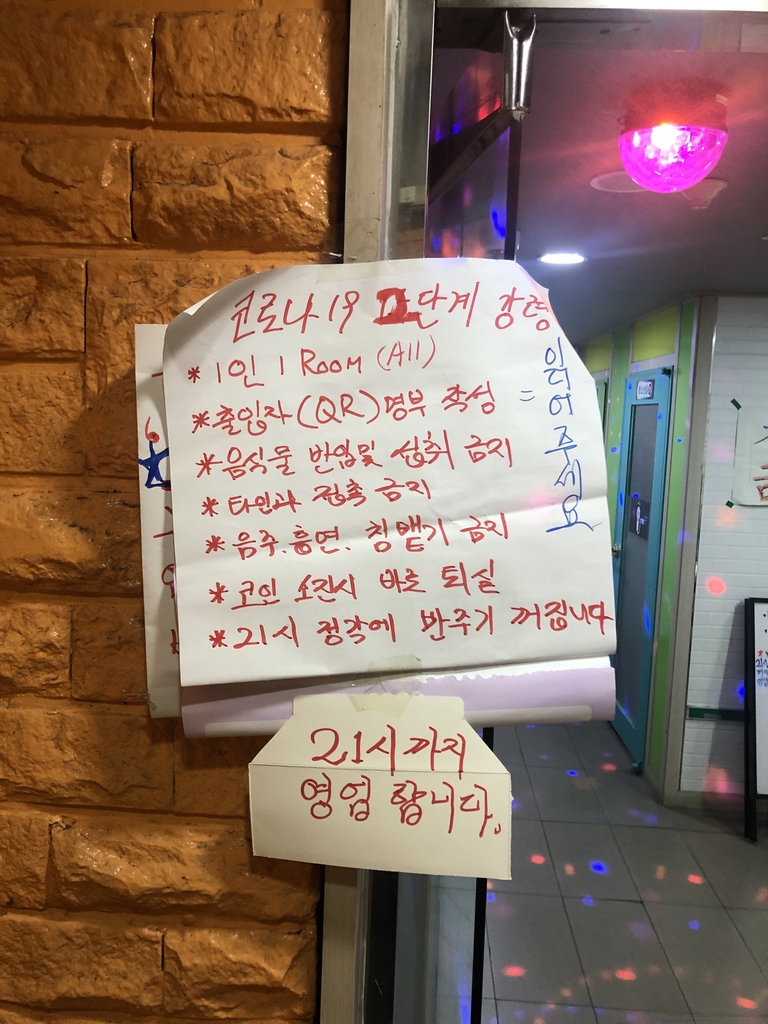 코로나 19 2단계 강령
* 1인 1 Room (All)
* 출입자 (QR) 명부 작성
* 음식물 반입및 섭취 금지
* 타인과 접촉 금지
* 음주.흡연. 침뱉기 금지
* 코인 소진시 바로 퇴실
* 21시 정각에 반주기 꺼집니다
= 읽어주세요
21시까지
영업 합니다.